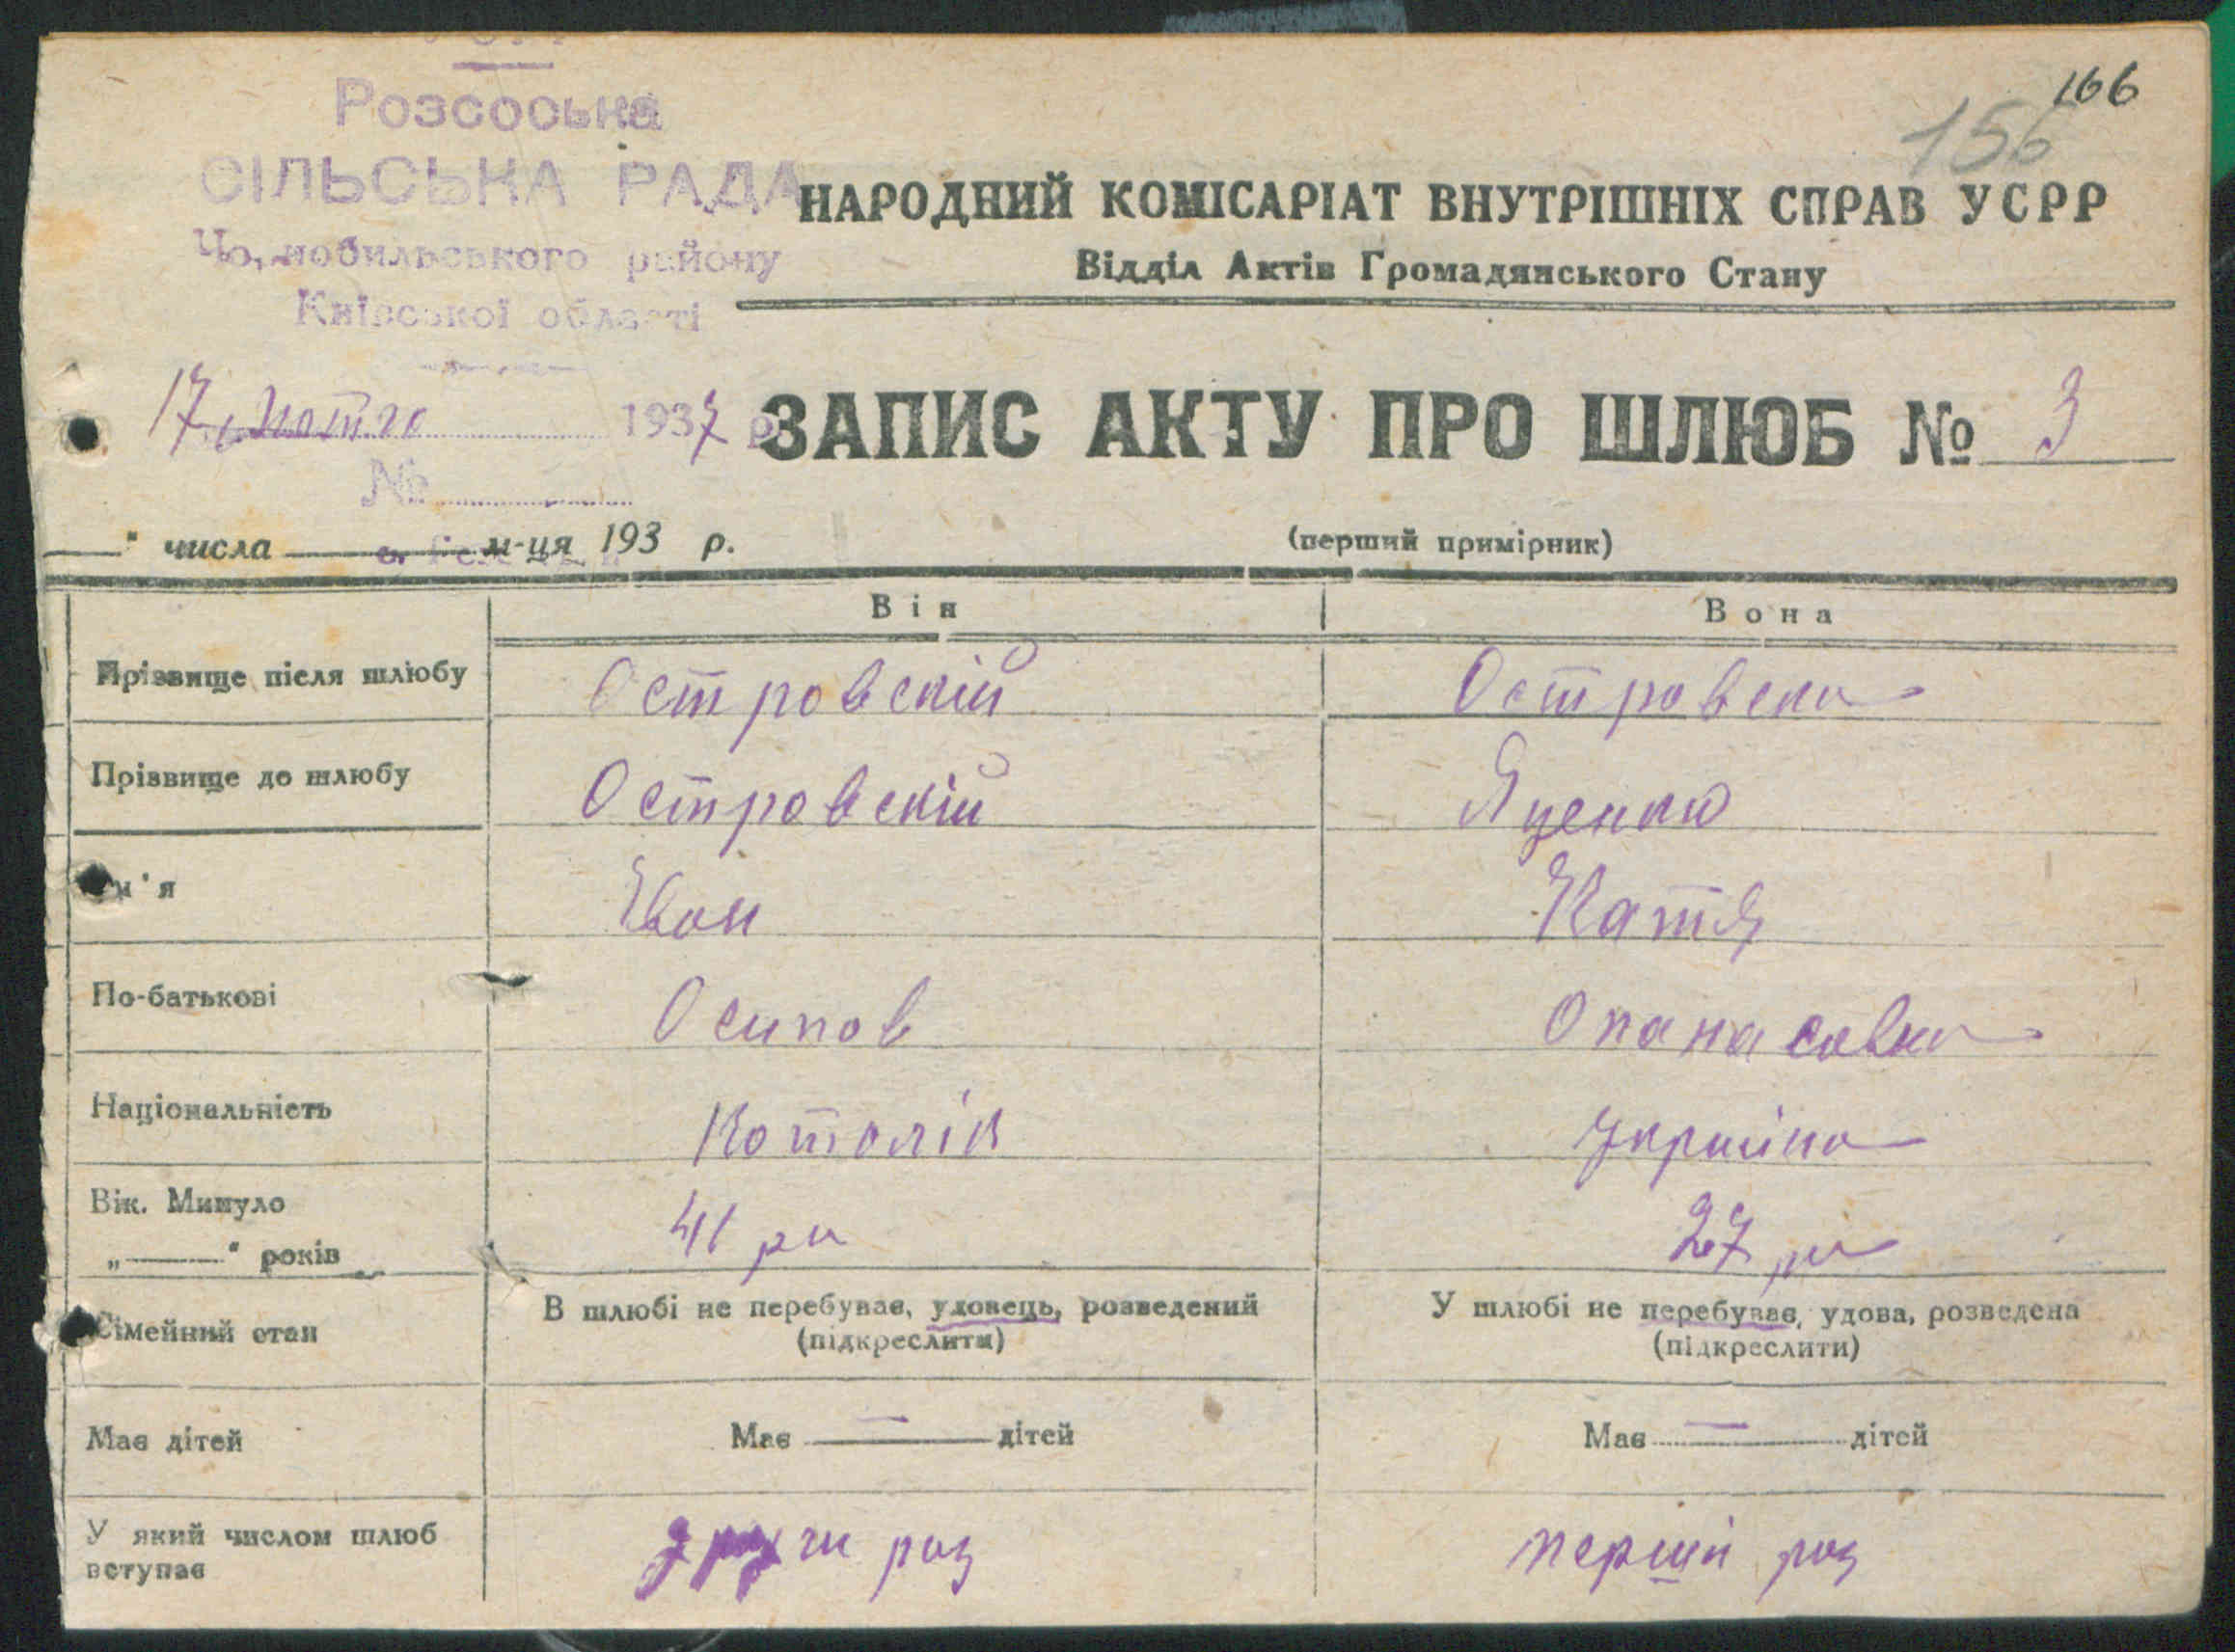 166
156
Розсоська
СІЛЬСЬКА РАДА
Чорнобильського району
Київської області
НАРОДНИЙ КОМІСАРІАТ ВНУТРІШНІХ СПРАВ УСРР
Відділ Актів Громадянського Стану
17 лютго 1937 р.
ЗАПИС АКТУ ПРО ШЛЮБ № 3
№
" числа м-ця 193 р.
(перший примірник)
Він Вона
Прізвище після шлюбу Островскій Островска
Прізвище до шлюбу Островскій Яценко
Ім'я Іван Катя
По-батькові Осипов Опанасовна
Національність Католік Украінка
Вік. Минуло
„ " років 41 рік 27 рік
Сімейний стан В шлюбі не перебував, удовець, розведений У шлюбі не перебував, удова, розведена
(підкреслити) (підкреслити)
Має дітей Має — дітей Має — дітей
У який числом шлюб
вступає други раз перший раз